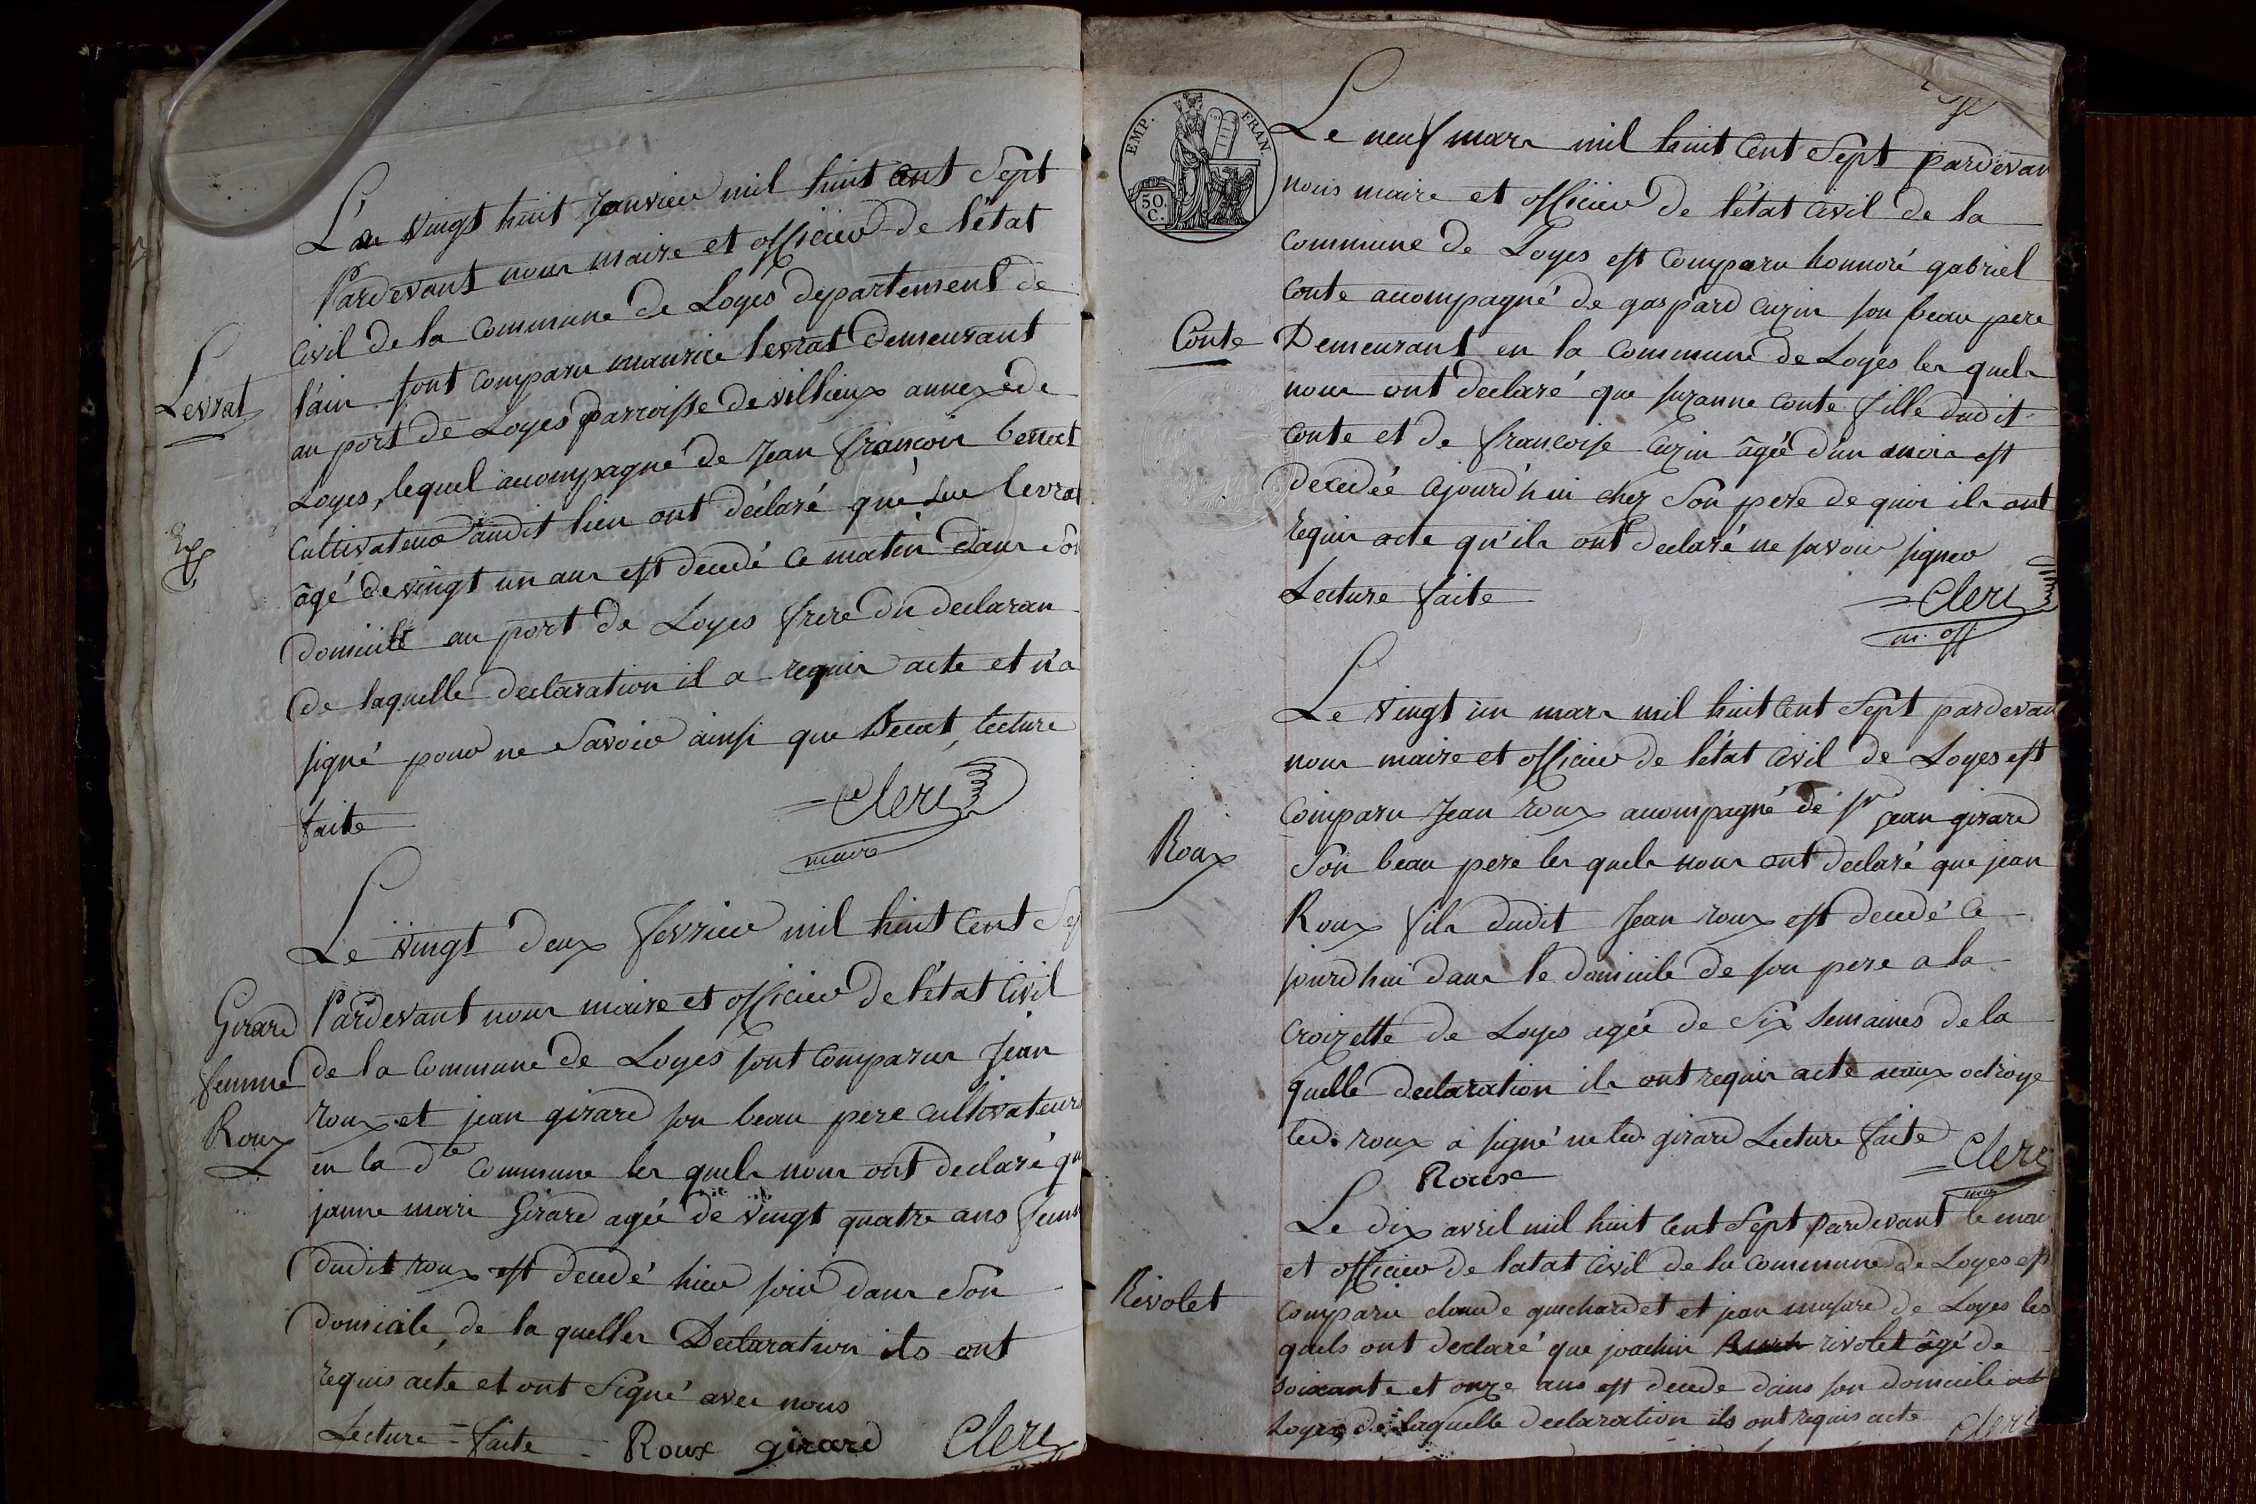 L'an vingt huit Janvier mil huit cent Sept
Pardevant nous maire et officier de l'état
Civil de la Commune de Loyes departement de
l'ain sont comparu maurice levrat demeurant
Levrat
au port de Loyes parroisse de villieux annexe de
Loyes, lequel accompagné de Jean françois
Cultivateur audit lieu ont déclaré que levrat
âgé de vingt un ans est decedé ce matin dans son
domicile au port de Loyes frere du declaran
de laquelle declaration il a requis acte et n'a
signé pour ne Savoir ainsi que lecture
faite
Clerc
maire
Le vingt deux fevrier mil huit Cent Sep
Girard
femme
Roux
Pardevant nous maire et officier de l'état Civil
de la Commune de Loyes sont comparus Jean
roux et jean girard son beau pere Cultivateurs
en la dte Commune les quels nous ont declaré que
janne mari Girard agée de vingt quatre ans femme
dudit roux est decedé hier soir dans Son
domicile, de la quelles Declaration ils ont
requis acte et ont Signé avec nous
Lecture = faite - Roux girard Clerc
EMP. FRAN.
50. C.
Le neuf mars mil huit Cent Sept pardevan
nous maire et officier de l'état Civil de la
Commune de Loyes est Comparu honnoré gabriel
Conte
Conte accompagné de gaspard cuzin son beau pere
Demeurant en la Commune de Loyes les quels
nous ont declaré que suzanne Conte fille dudit
Conte et de françoise cuzin âgée d'un mois est
decedée ajourd'hui chez Son pere de quoi ils ont
requis acte qu'ils ont declaré ne savoir signer
Lecture faite
Clerc
m. off
Le vingt un mars mil huit Cent Sept pardevan
nous maire et officier de l'état Civil de Loyes est
Comparu Jean roux accompagné de Sr jean girard
Roux
Son beau pere les quels nous ont declaré que jean
Roux fils dudit Jean roux est decedé ce
jourd'hui dans le domicile de son pere a la
Croizette de Loyes agée de Six Semaines de la
quelle declaration ils ont requis acte a eux octroye
led. roux a signé ne led. girard Lecture faite
Clerc
Roux
Le dix avril mil huit Cent Sept Pardevant le mair
et officier de latat Civil de la Commune de Loyes est
Rivolet
Comparu claude guichardet et jean musard de Loyes les
quels ont declaré que joachin rivolet âgé de
soixante et onze ans est decede dans son domicile
Loyes, de laquelle declaration ils ont requis acte
Clerc